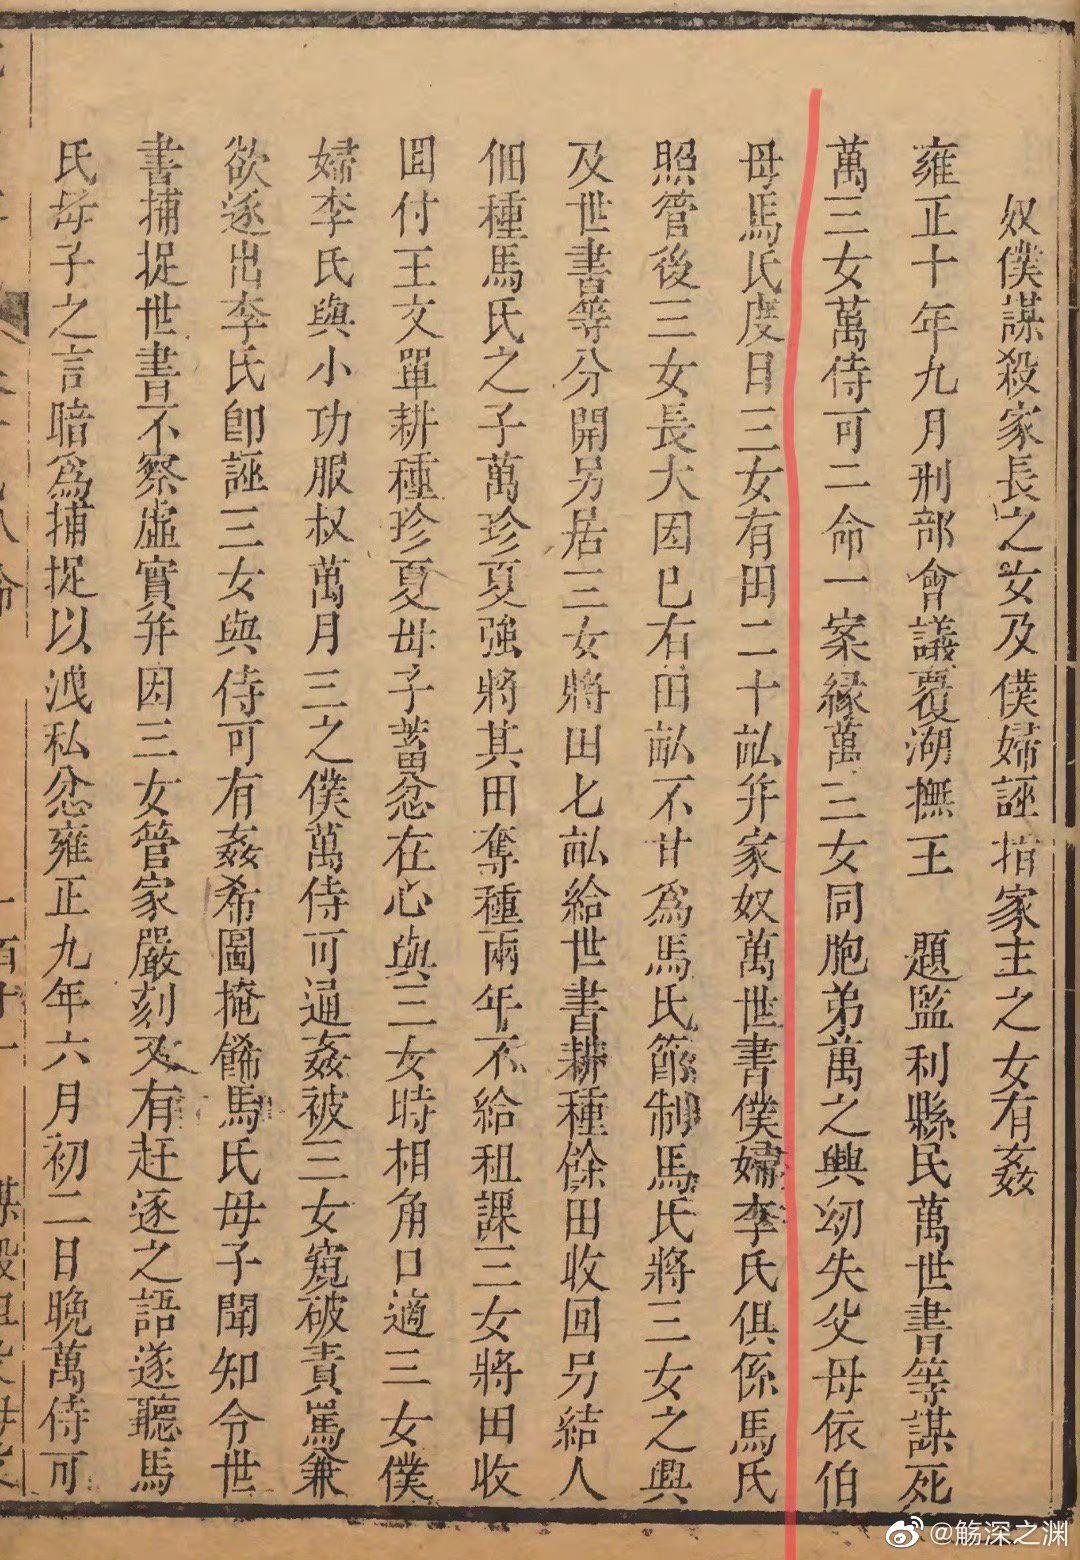 奴僕謀殺家長之女及僕婦誣指家主之女有姦
雍正十年九月刑部會議覆湖撫王　題監利縣民萬世書等謀死
萬三女萬侍可二命一案緣萬三女同胞弟萬之興幼失父母依伯
母馬氏度日三女有田二十畝并家奴萬世書僕婦李氏俱係馬氏
照管後三女長大因已有田畝不甘為馬氏箝制馬氏將三女之興
及世書等分開另居三女將田七畝給世書耕種餘田收回另結人
佃種馬氏之子萬珍夏強將其田奪種兩年不給租課三女將田收
回付王文單耕種珍夏母子蓄忿在心與三女時相角口適三女僕
婦李氏與小功服叔萬月三之僕萬侍可通姦被三女窺破責罵兼
欲逐出李氏卽誣三女與侍可有姦希圖掩飾馬氏母子聞知令世
書捕捉世書不察虛實并因三女管家嚴刻又有赶逐之語遂聽馬
氏母子之言暗為捕捉以洩私忿雍正九年六月初二日晚萬侍可
@觞深之渊